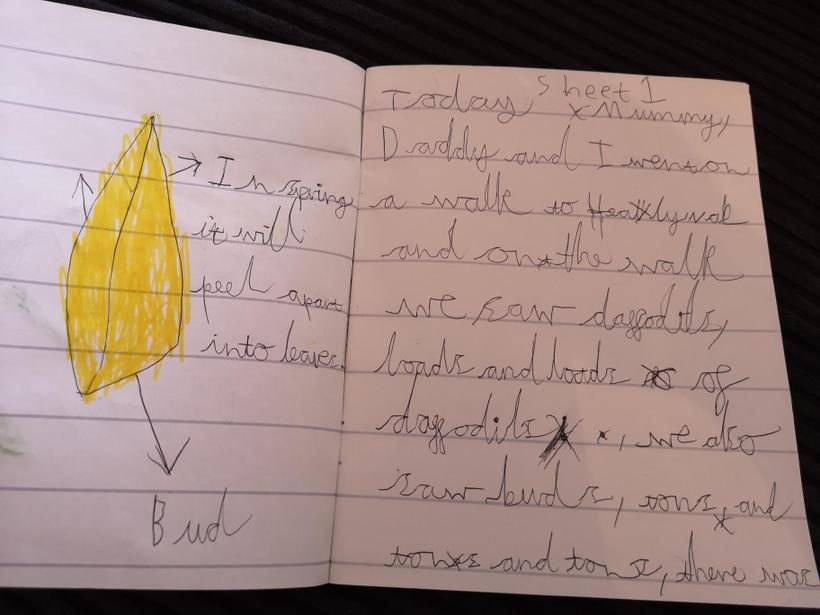 In spring
it will
peel apart
into leaves.
Bud
Sheet 1
Today Mummy,
Daddy and I went on
a walk to
and on the walk
we saw daffodils,
loads and loads of
daffodils, we also
saw buds, tons, and
tons and tons, there was